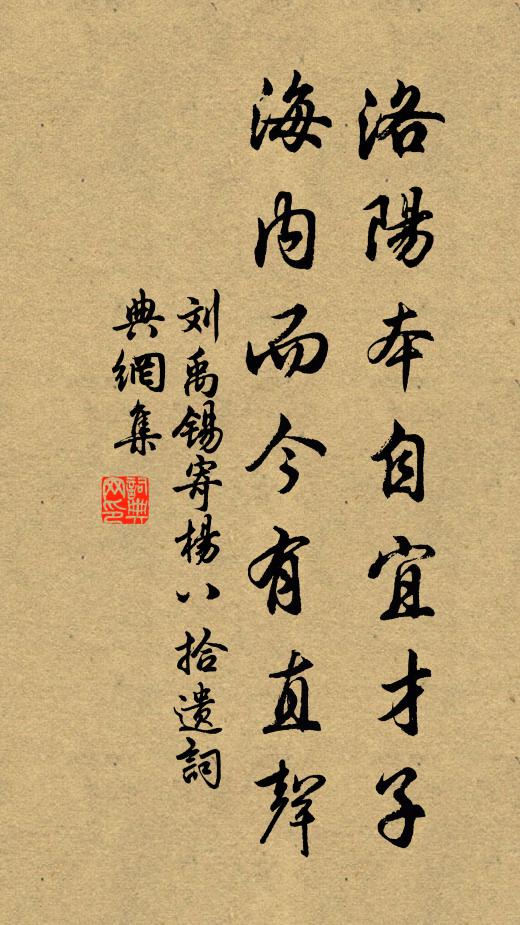 洛陽本自宜才子
海内而今有直聲
刘禹锡寄楊八拾遺詞
典網集
詞典网印